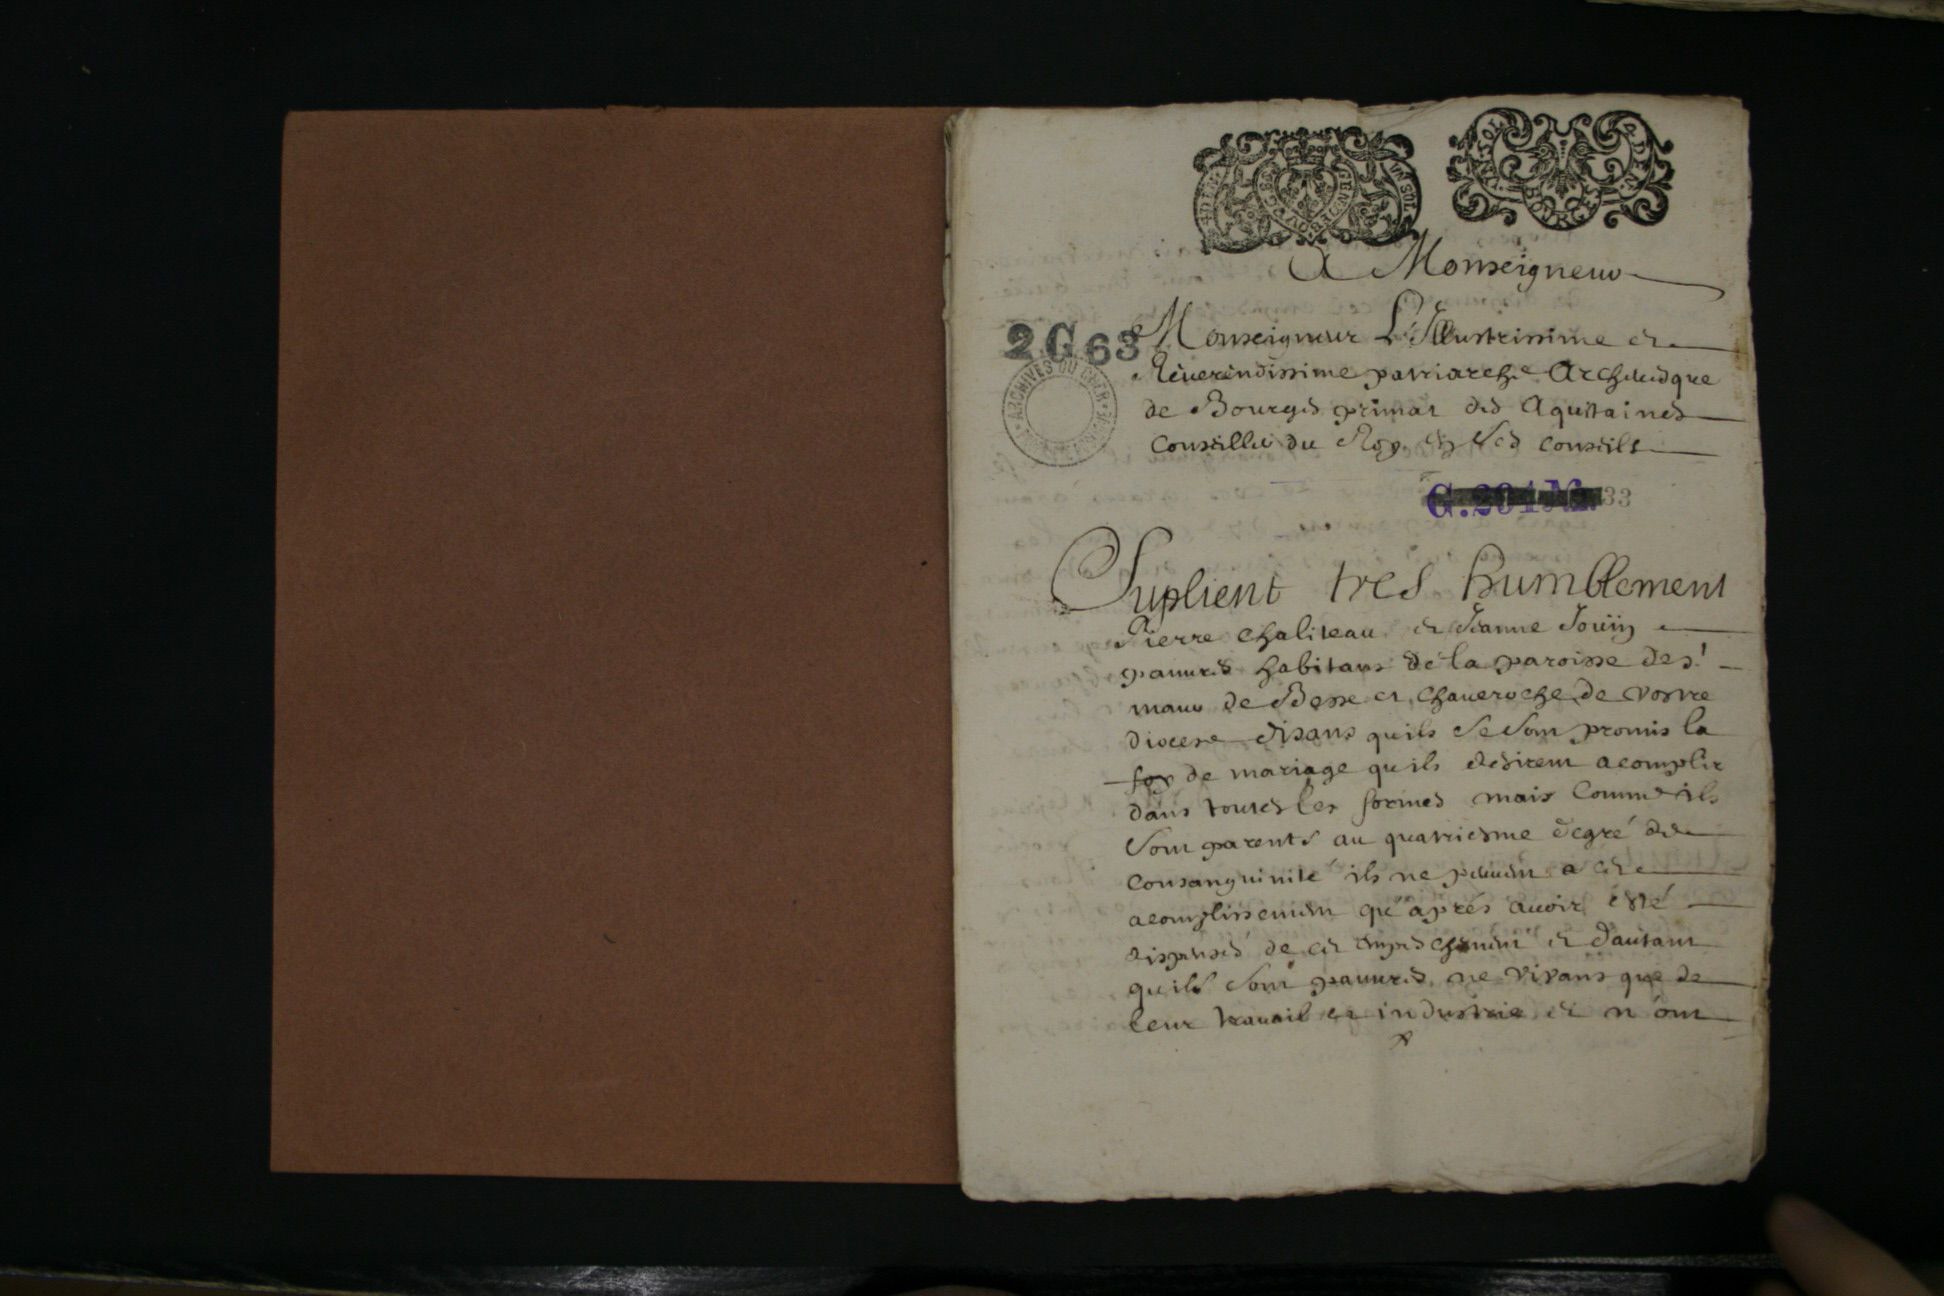 A Monseigneur
2 G 63
ARCHIVES DU CHER
Monseigneur L'Illustrissime et
Reverendissime patriarche Archevesque
de Bourges primat des Aquitaines
Conseiller du Roy en ses conseils
G. 33
Suplient tres humblement
Pierre Chaliteau et Jeanne Jouïn
pauvres habitans de la paroisse de St
maur de Besse et Chaveroche de vostre
diocese disans quils se sont promis la
foy de mariage quils desirent acomplir
dans toutes les formes mais Comme ils
Sont parents au quatriesme degré de
Consanguinité ils ne peuvent a cet
acomplissement qu'aprés avoir esté
dispensés de cet empeschement et dautant
quils sont pauvres ne vivans que de
leur travail et industrie et n'ont